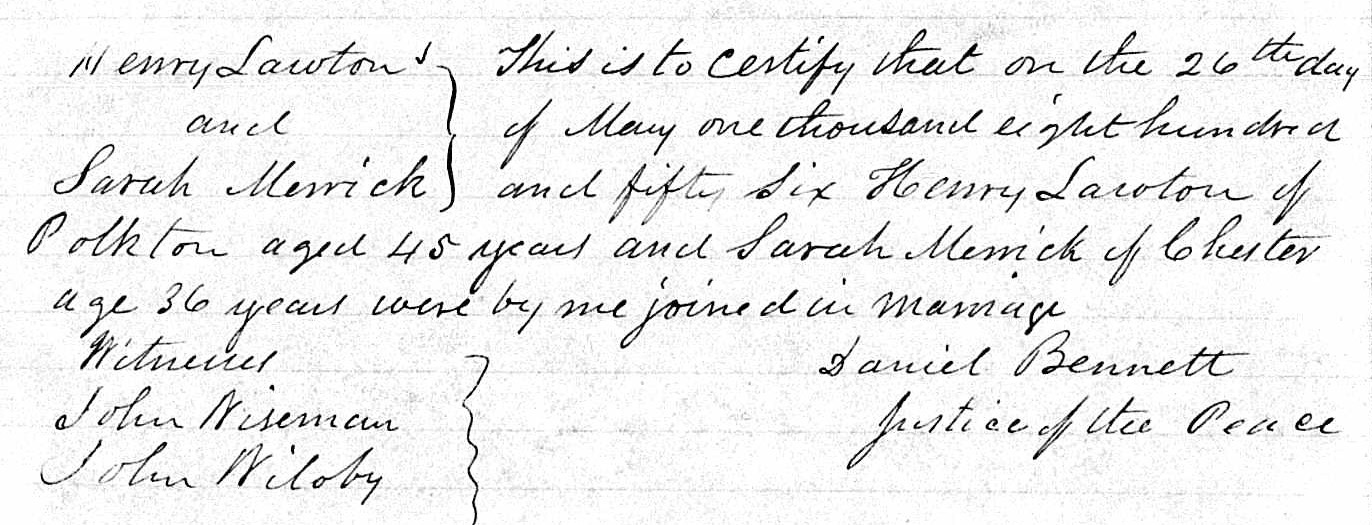 Henry Lawton } This is to certify that on the 26th day
and } of May one thousand eight hundred
Sarah Merrick } and fifty six Henry Lawton of
Polkton aged 45 years and Sarah Merrick of Chester
age 36 years were by me joined in marriage
Witnesses } Daniel Bennett
John Wiseman } Justice of the Peace
John Wiloby }